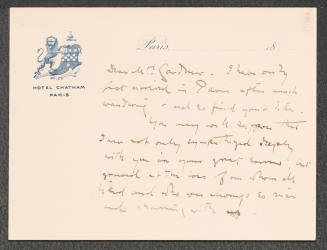 HOTEL CHATHAM
PARIS
Paris, 18
Dear Mrs Gardner. I have only
just arrived in Paris after much
wandering & not to find your
You may well suppose that
I have not only sympathized deeply
with you in your great sorrow but
grieved at the loss of one whom all
liked and who was always so nice
and charming with us.